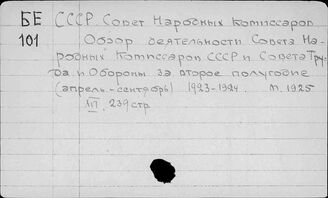 БЕ СССР. Совет Народных Комиссаров
101
Обзор деятельности Совета На-
родных Комиссаров СССР и Совета Тру-
да и Обороны за второе полугодие
(апрель-сентябрь) 1923-1924. М. 1925
239 стр.